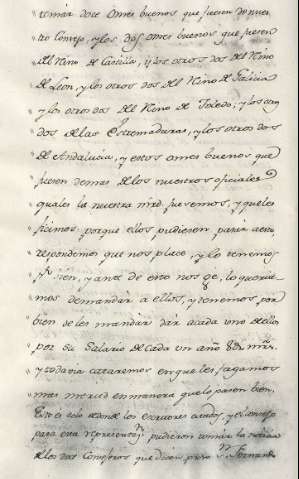 tomár doce omes buenos que fuesen de nues-
tro Consejo, y los dos omes buenos que fuesen
del Reino de Castilla, y los otros dos del Reino
de Leon, y los otros dos del Reino de Galicia
y los otros dos del Reino de Toledo, y los otros
dos de las Estremaduras, y los otros dos
de Andalucia, y estos omes buenos que
fuesen demas de los nuestros oficiales
quales la nuestra mrd. fueremos, y que les
ficimos porque ellos pudiesen
respondemos que nos place, y lo tenemos
por bien, y antes de esto nos lo queria-
mos demandar a ellos, y tenemos por
bien de les mandar dár a cada uno de ellos
por su Salario de cada un año mrs.
y todavia cataremos en que les fagamos
mas merced en manera que lo pasen bien.
Esto es de donde los Escritores
para esta pudieron tomar la noticia
de los dos Consejeros que dicen puso Dn. Fernando